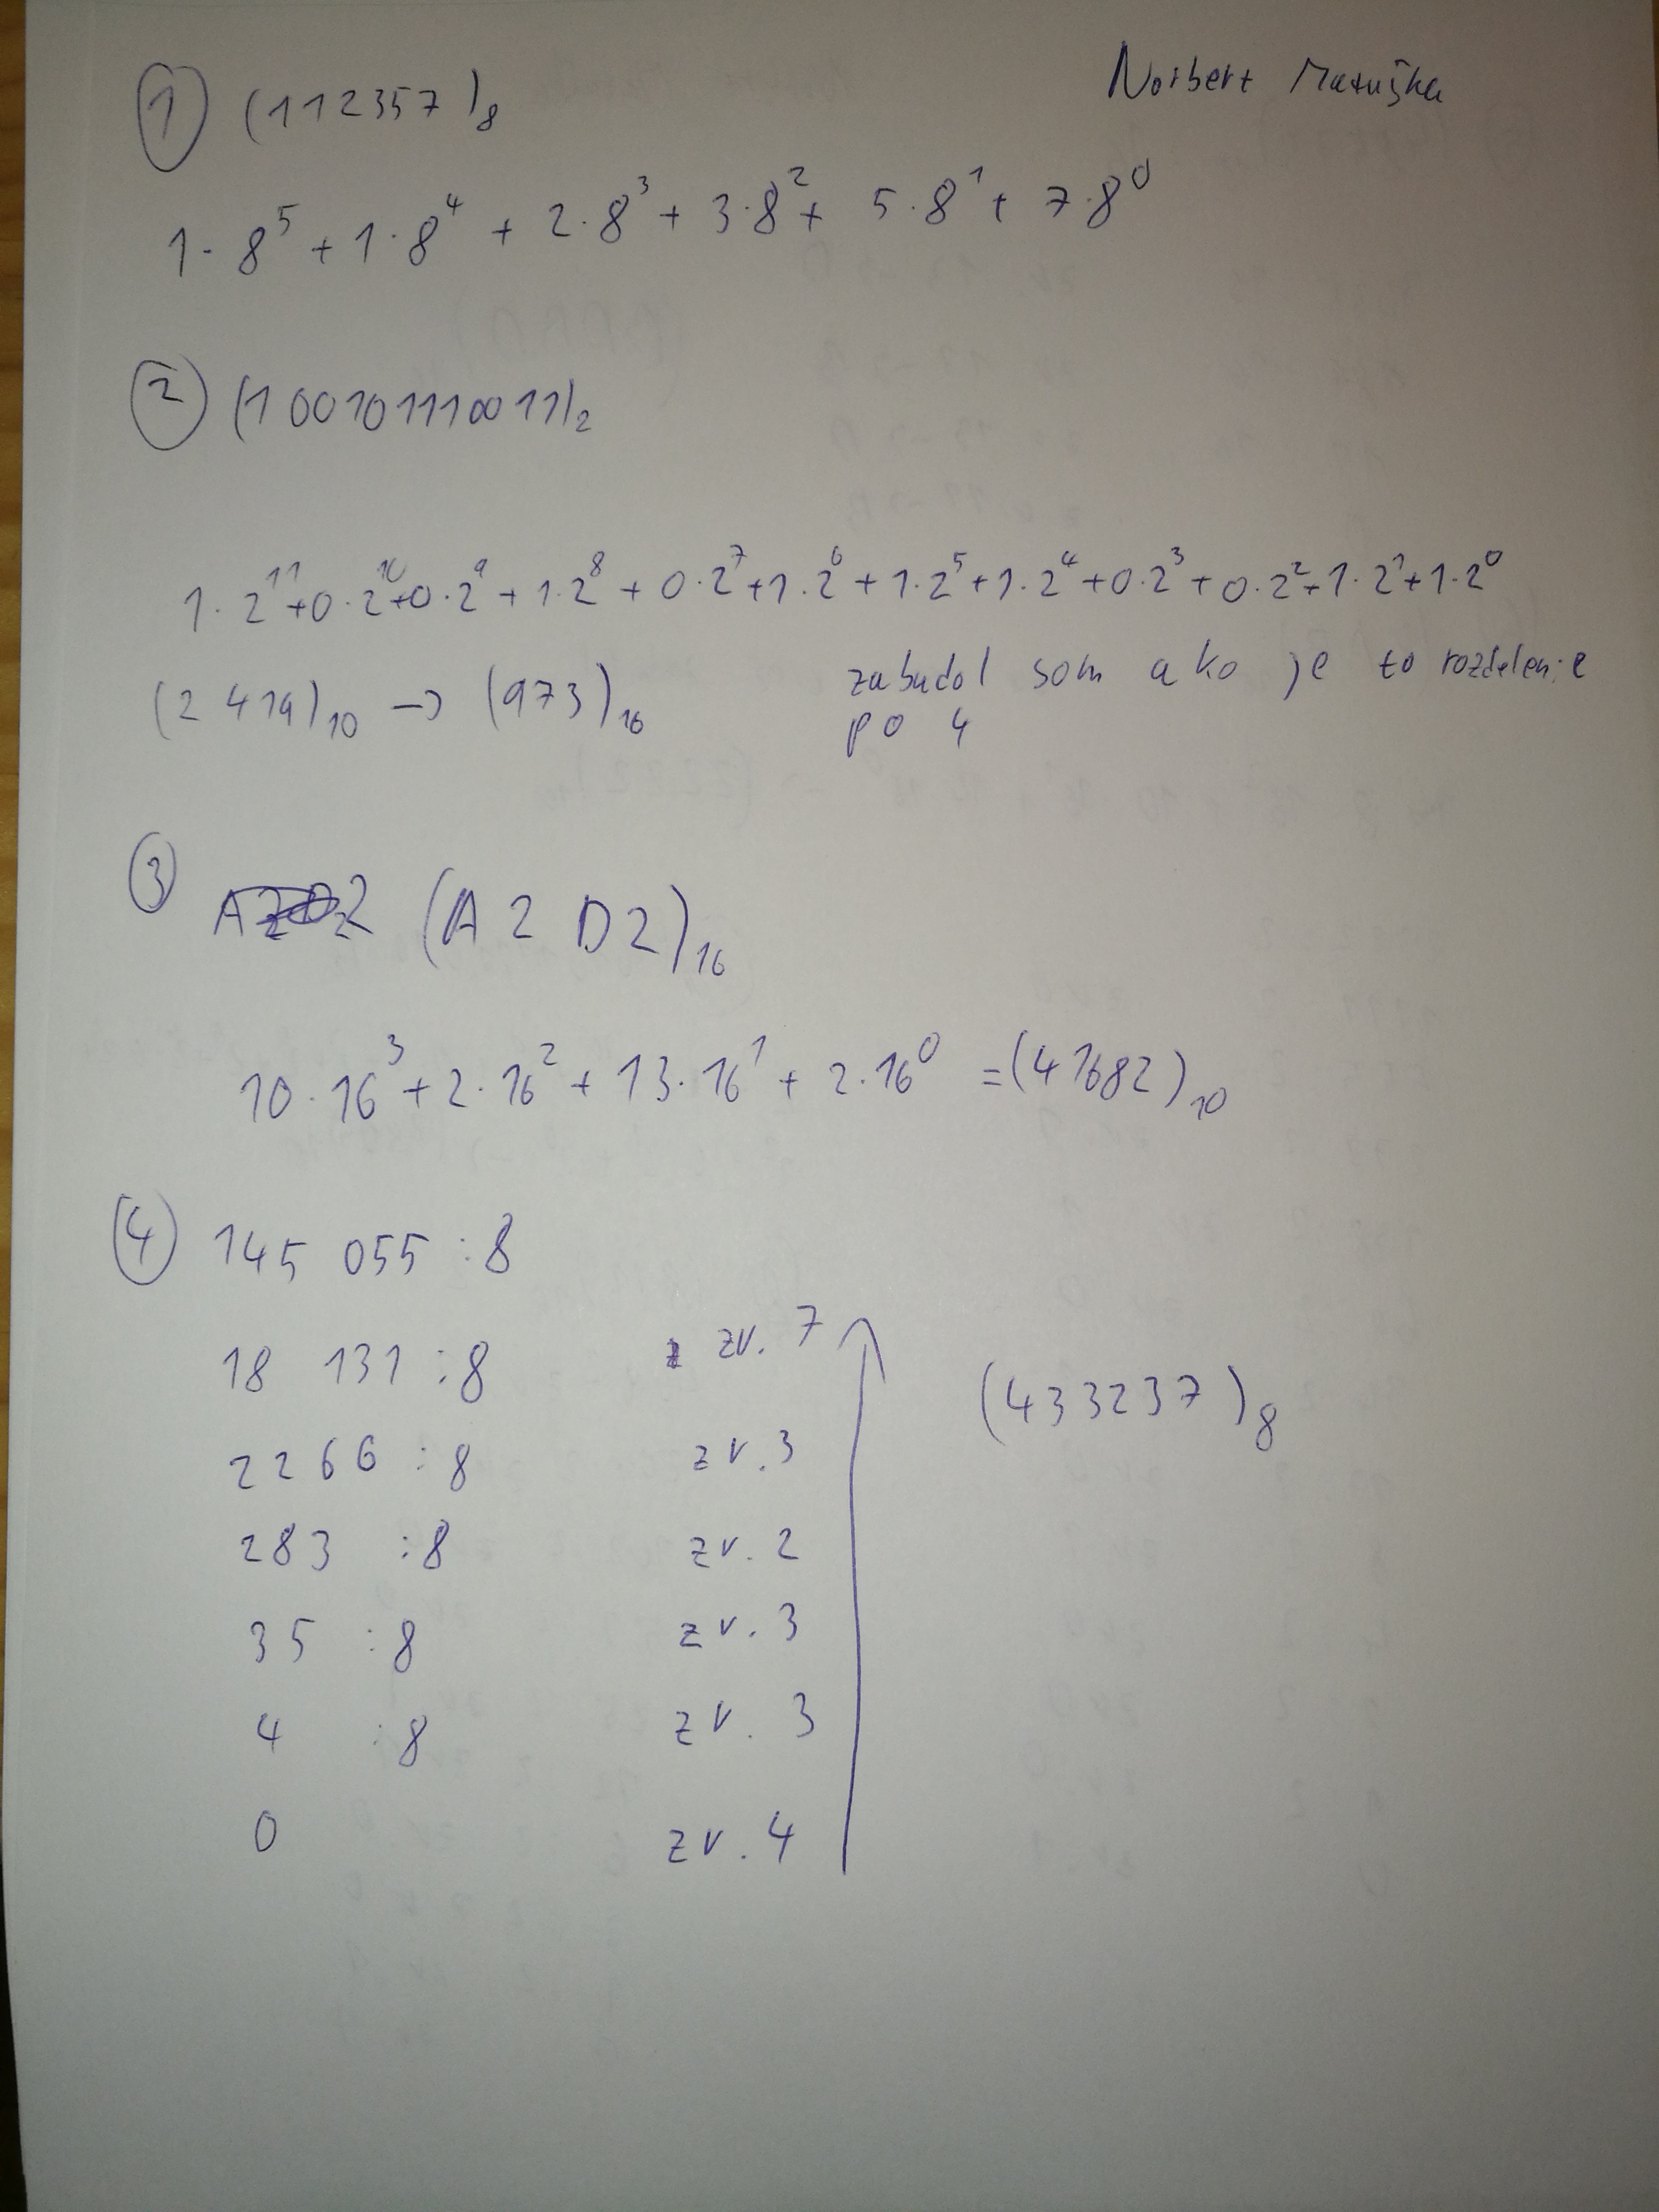 Norbert Matuška
① (112357)₈
1·8⁵+1·8⁴+2·8³+3·8²+5·8¹+7·8⁰
② (100101110011)₂
1·2¹¹+0·2¹⁰+0·2⁹+1·2⁸+0·2⁷+1·2⁶+1·2⁵+1·2⁴+0·2³+0·2²+1·2¹+1·2⁰
(2419)₁₀ → (973)₁₆
zabudol som ako je to rozdelenie
po 4
③ (A2D2)₁₆
10·16³+2·16²+13·16¹+2·16⁰ =(41682)₁₀
④ 145 055 :8
18 131 :8 zv. 7
2266 :8 zv. 3
283 :8 zv. 2
35 :8 zv. 3
4 :8 zv. 3
0 zv. 4
(433237)₈